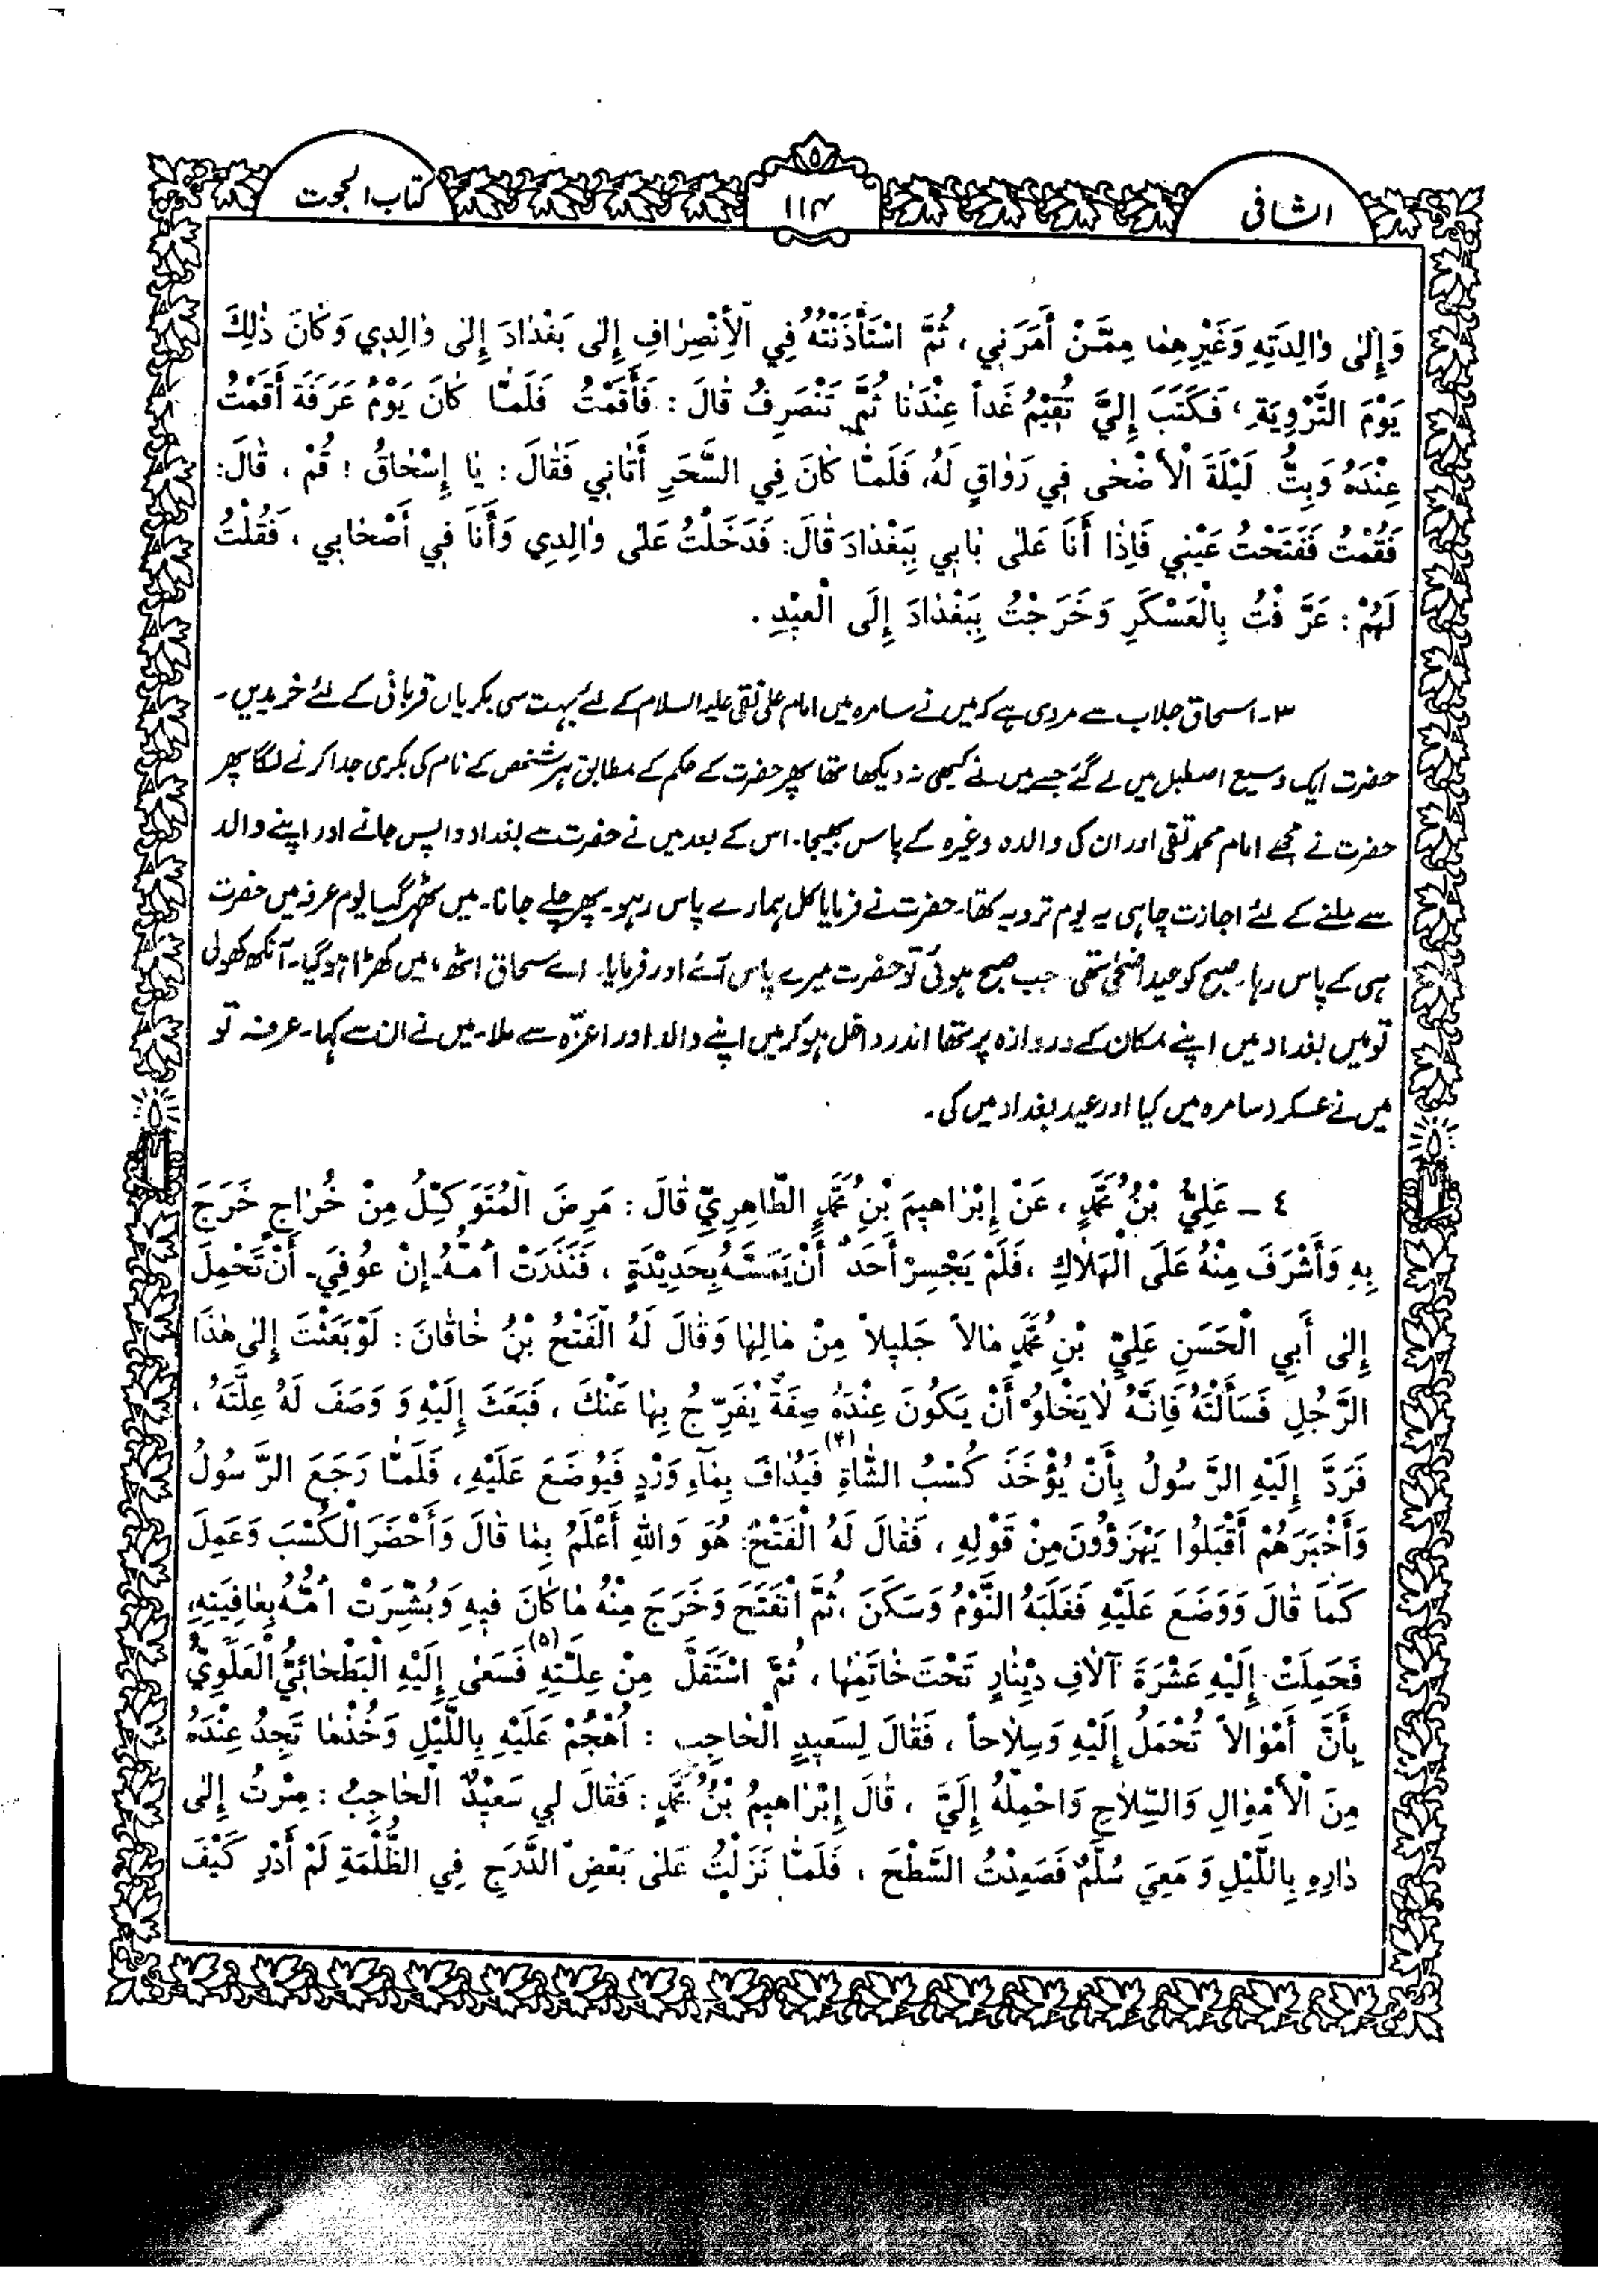 الشافی
۱۱۴
کتاب الحجت
وَإِلىٰ وٰالِدَتِهِ وَغَيْرِهِمٰا مِمَّنْ أَمَرَني ، ثُمَّ اسْتَأْذَنْتُهُ فِي الْأِنْصِرٰافِ إِلىٰ بَغْدٰادَ إِلىٰ وٰالِدِي وَكٰانَ ذٰلِكَ
يَوْمَ التَّرْوِيَةِ ، فَكَتَبَ إِلَيَّ تُقِيْمُ غَداً عِنْدَنٰا ثُمَّ تَنْصَرِفُ قٰالَ : فَأَقَمْتُ فَلَمّٰا كٰانَ يَوْمُ عَرَفَةَ أَقَمْتُ
عِنْدَهُ وَبِتُّ لَيْلَةَ الْأَضْحٰى فِي رَوٰاقٍ لَهُ، فَلَمّٰا كٰانَ فِي السَّحَرِ أَتٰانِي فَقٰالَ : يٰا إِسْحٰاقُ ! قُمْ ، قٰالَ:
فَقُمْتُ فَفَتَحْتُ عَيْنِي فَاِذٰا أَنَا عَلىٰ بٰابِي بِبَغْدٰادَ قٰالَ: فَدَخَلْتُ عَلىٰ وٰالِدِي وَأَنَا فِي أَصْحٰابِي ، فَقُلْتُ
لَهُمْ : عَرَّفْتُ بِالْعَسْكَرِ وَخَرَجْتُ بِبَغْدٰادَ إِلَى الْعِيْدِ .
۳۔ اسحاق جلاب سے مروی ہے کہ میں نے سامرہ میں امام علی نقی علیہ السلام کے لئے بہت سی بکریاں قربانی کے لئے خریدیں۔
حضرت ایک وسیع اصطبل میں لے گئے جسے میں نے کبھی نہ دیکھا تھا پھر حضرت کے حکم کے مطابق ہر شخص کے نام کی بکری جدا کرنے لگا پھر
حضرت نے مجھے امام محمد تقی اور ان کی والدہ وغیرہ کے پاس بھیجا۔ اس کے بعد میں نے حضرت سے بغداد واپس جانے اور اپنے والد
سے ملنے کے لئے اجازت چاہی یہ یوم ترویہ کتھا۔ حضرت نے فرمایا کل ہمارے پاس رہو۔ پھر چلے جانا۔ میں ٹھہر گیا یوم عرفہ میں حضرت
ہی کے پاس رہا۔ صبح کو عید اضحیٰ تھی جب صبح ہوئی تو حضرت میرے پاس آئے اور فرمایا۔ اے سحاق اٹھ، میں کھڑا ہو گیا۔ آنکھ کھولی
تو میں بغداد میں اپنے مکان کے دروازہ پر تھا اندر داخل ہو کر میں اپنے والد اور اعزّہ سے ملا۔ میں نے ان سے کہا۔ عرفہ تو
میں نے عسکر دسامرہ میں کیا اور عید بغداد میں کی۔
٤ ـ عَلِيُّ بْنُ مُحَمَّدٍ ، عَنْ إِبْرٰاهِيمَ بْنِ مُحَمَّدٍ الطّٰاهِرِيِّ قٰالَ : مَرِضَ الْمُتَوَكِّلُ مِنْ خُرٰاجٍ خَرَجَ
بِهِ وَأَشْرَفَ مِنْهُ عَلَى الْهَلٰاكِ ،فَلَمْ يَجْسِرْ أَحَدٌ أَنْ يَمَسَّهُ بِحَدِيْدَةٍ ، فَنَذَرَتْ اُمُّهُ ـ إِنْ عُوفِيَ ـ أَنْ تَحْمِلَ
إِلىٰ أَبِي الْحَسَنِ عَلِيِّ بْنِ مُحَمَّدٍ مٰالاً جَلِيلاً مِنْ مٰالِهٰا وَقٰالَ لَهُ الْفَتْحُ بْنُ خٰاقٰانَ : لَوْ بَعَثْتَ إِلىٰ هٰذَا
الرَّجُلِ فَسَأَلْتَهُ فَاِنَّهُ لٰا يَخْلُو أَنْ يَكُونَ عِنْدَهُ صِفَةٌ يُفَرِّجُ بِهٰا عَنْكَ ، فَبَعَثَ إِلَيْهِ وَ وَصَفَ لَهُ عِلَّتَهُ ،
فَرَدَّ إِلَيْهِ الرَّسُولُ بِأَنْ يُؤْخَذَ كُسْبُ الشّٰاةِ (۴) فَيُدٰافَ بِمٰاءِ وَرْدٍ فَيُوضَعَ عَلَيْهِ، فَلَمّٰا رَجَعَ الرَّسُولُ
وَأَخْبَرَهُمْ أَقْبَلُوا يَهْزَؤُونَ مِنْ قَوْلِهِ ، فَقٰالَ لَهُ الْفَتْحُ: هُوَ وَاللهِ أَعْلَمُ بِمٰا قٰالَ وَأَحْضَرَ الْكُسْبَ وَعَمِلَ
كَمَا قٰالَ وَوَضَعَ عَلَيْهِ فَغَلَبَهُ النَّوْمُ وَسَكَنَ ،ثُمَّ انْفَتَحَ وَخَرَجَ مِنْهُ مٰا كٰانَ فِيهِ وَبُشِّرَتْ اُمُّهُ بِعٰافِيَتِهِ،
فَحَمِلَتْ إِلَيْهِ عَشْرَةَ آلٰافِ دِيْنٰارٍ تَحْتَ خٰاتَمِهٰا ، ثُمَّ اسْتَقَلَّ مِنْ عِلَّتِهِ (۵) فَسَعىٰ إِلَيْهِ الْبَطْحٰائِيُّ الْعَلَوِيُّ
بِأَنَّ أَمْوٰالاً تُحْمَلُ إِلَيْهِ وَسِلٰاحاً ، فَقٰالَ لِسَعِيدٍ الْحٰاجِبِ : اُهْجُمْ عَلَيْهِ بِاللَّيْلِ وَخُذْ مٰا تَجِدُ عِنْدَهُ
مِنَ الْأَمْوٰالِ وَالسِّلٰاحِ وَاحْمِلْهُ إِلَيَّ ، قٰالَ إِبْرٰاهِيمُ بْنُ مُحَمَّدٍ : فَقٰالَ لِي سَعِيْدٌ الْحٰاجِبُ : صِرْتُ إِلىٰ
دٰارِهِ بِاللَّيْلِ وَ مَعِيَ سُلَّمٌ فَصَعِدْتُ السَّطْحَ ، فَلَمّٰا نَزَلْتُ عَلىٰ بَعْضِ الدَّرَجِ فِي الظُّلْمَةِ لَمْ أَدْرِ كَيْفَ